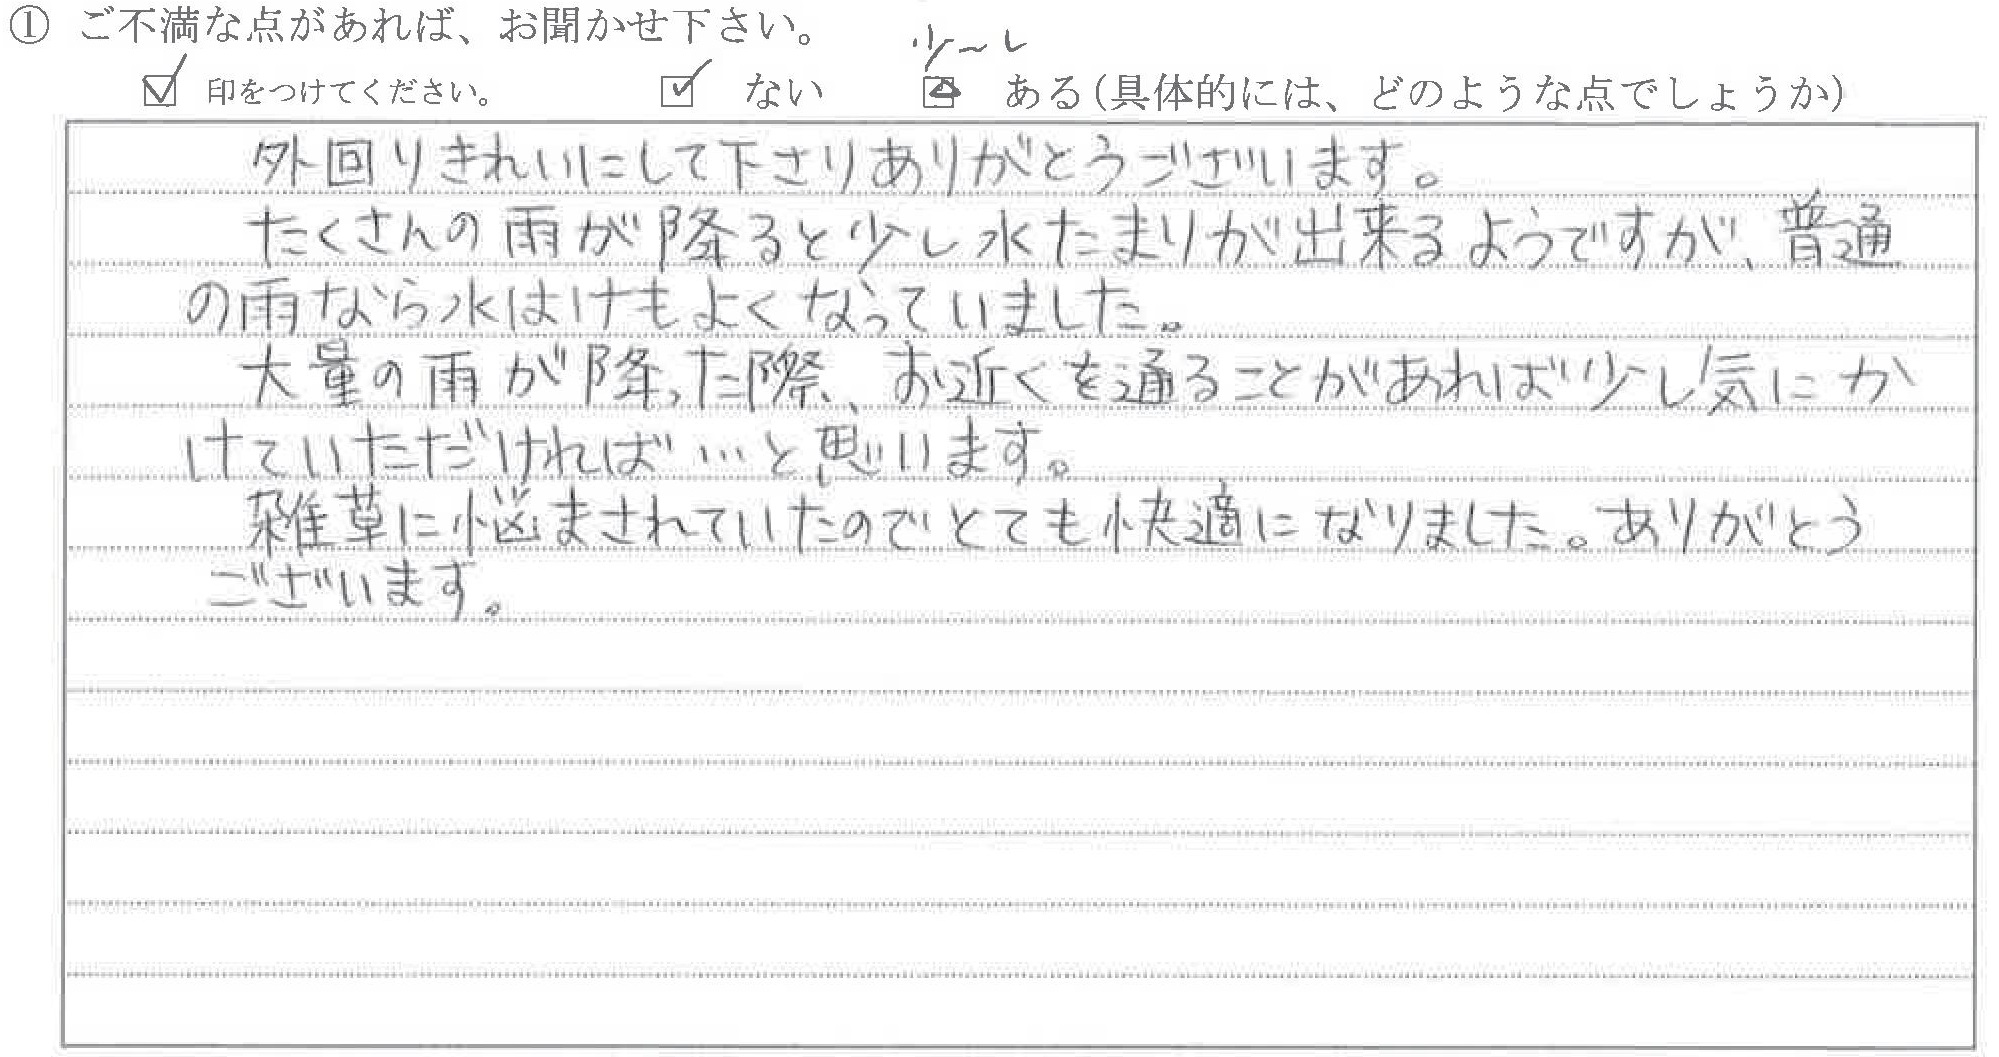 ① ご不満な点があれば、お聞かせ下さい。
少〜し
☑ 印をつけてください。 ☑ ない △ ある(具体的には、どのような点でしょうか)
外回りきれいにして下さりありがとうございます。
たくさんの雨が降ると少し水たまりが出来るようですが、普通
の雨なら水はけもよくなっていました。
大量の雨が降った際、お近くを通ることがあれば少し気にか
けていただければ…と思います。
雑草に悩まされていたのでとても快適になりました。ありがとう
ございます。